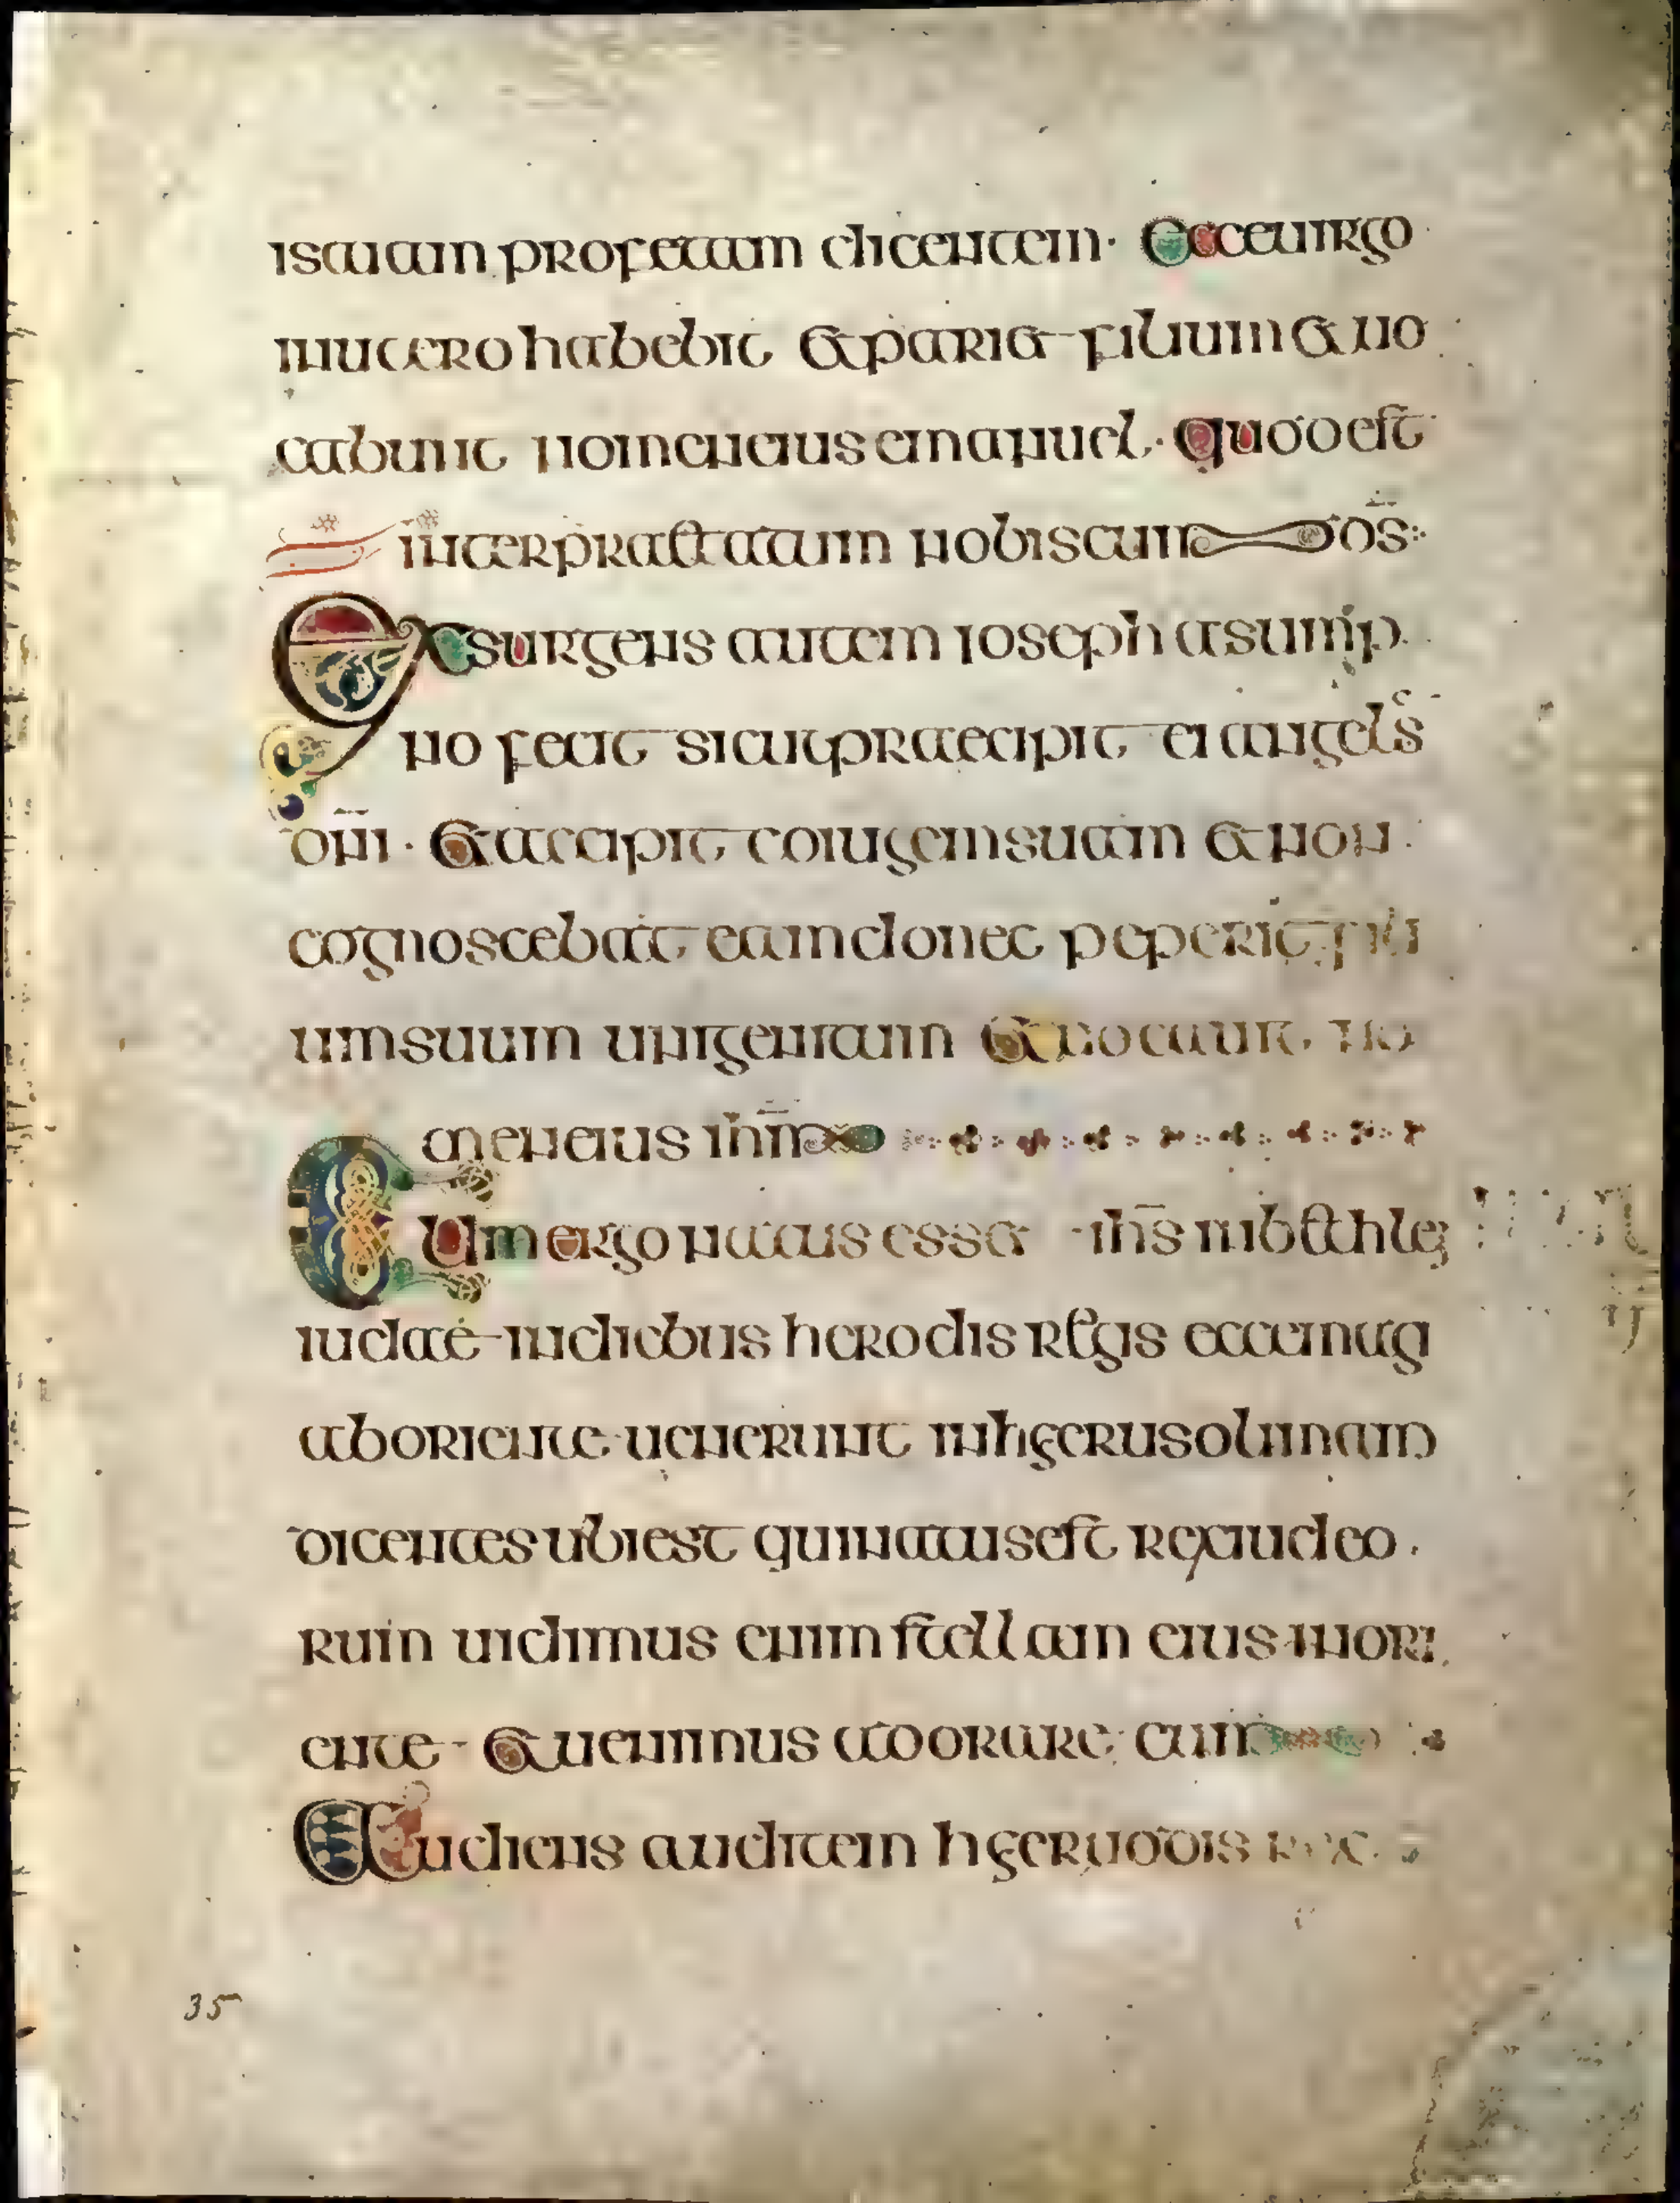 isaiam profetam dicentem · Ecce uirgo
in utero habebit et pariet filium et uo
cabunt nomen eius emanuel · quod est
interpraetatum nobiscum ds̄
Exsurgens autem ioseph a sump
no fecit sicut praecipit ei angels
dn̄i · Et accipit coiugem suam et non
cognoscebat eam donec peperit fili
um suum unigenitum et uocauit no
men eius ihm̄
Cum ergo natus esset ihs̄ in bethlem
iudae in diebus herodis regis ecce magi
ab oriente uenerunt in hierusolimam
dicentes ubi est qui natus est rex iudeo
rum uidimus enim stellam eius in ori
ente Et uenimus adorare eum
Audiens autem hierodis rex
35